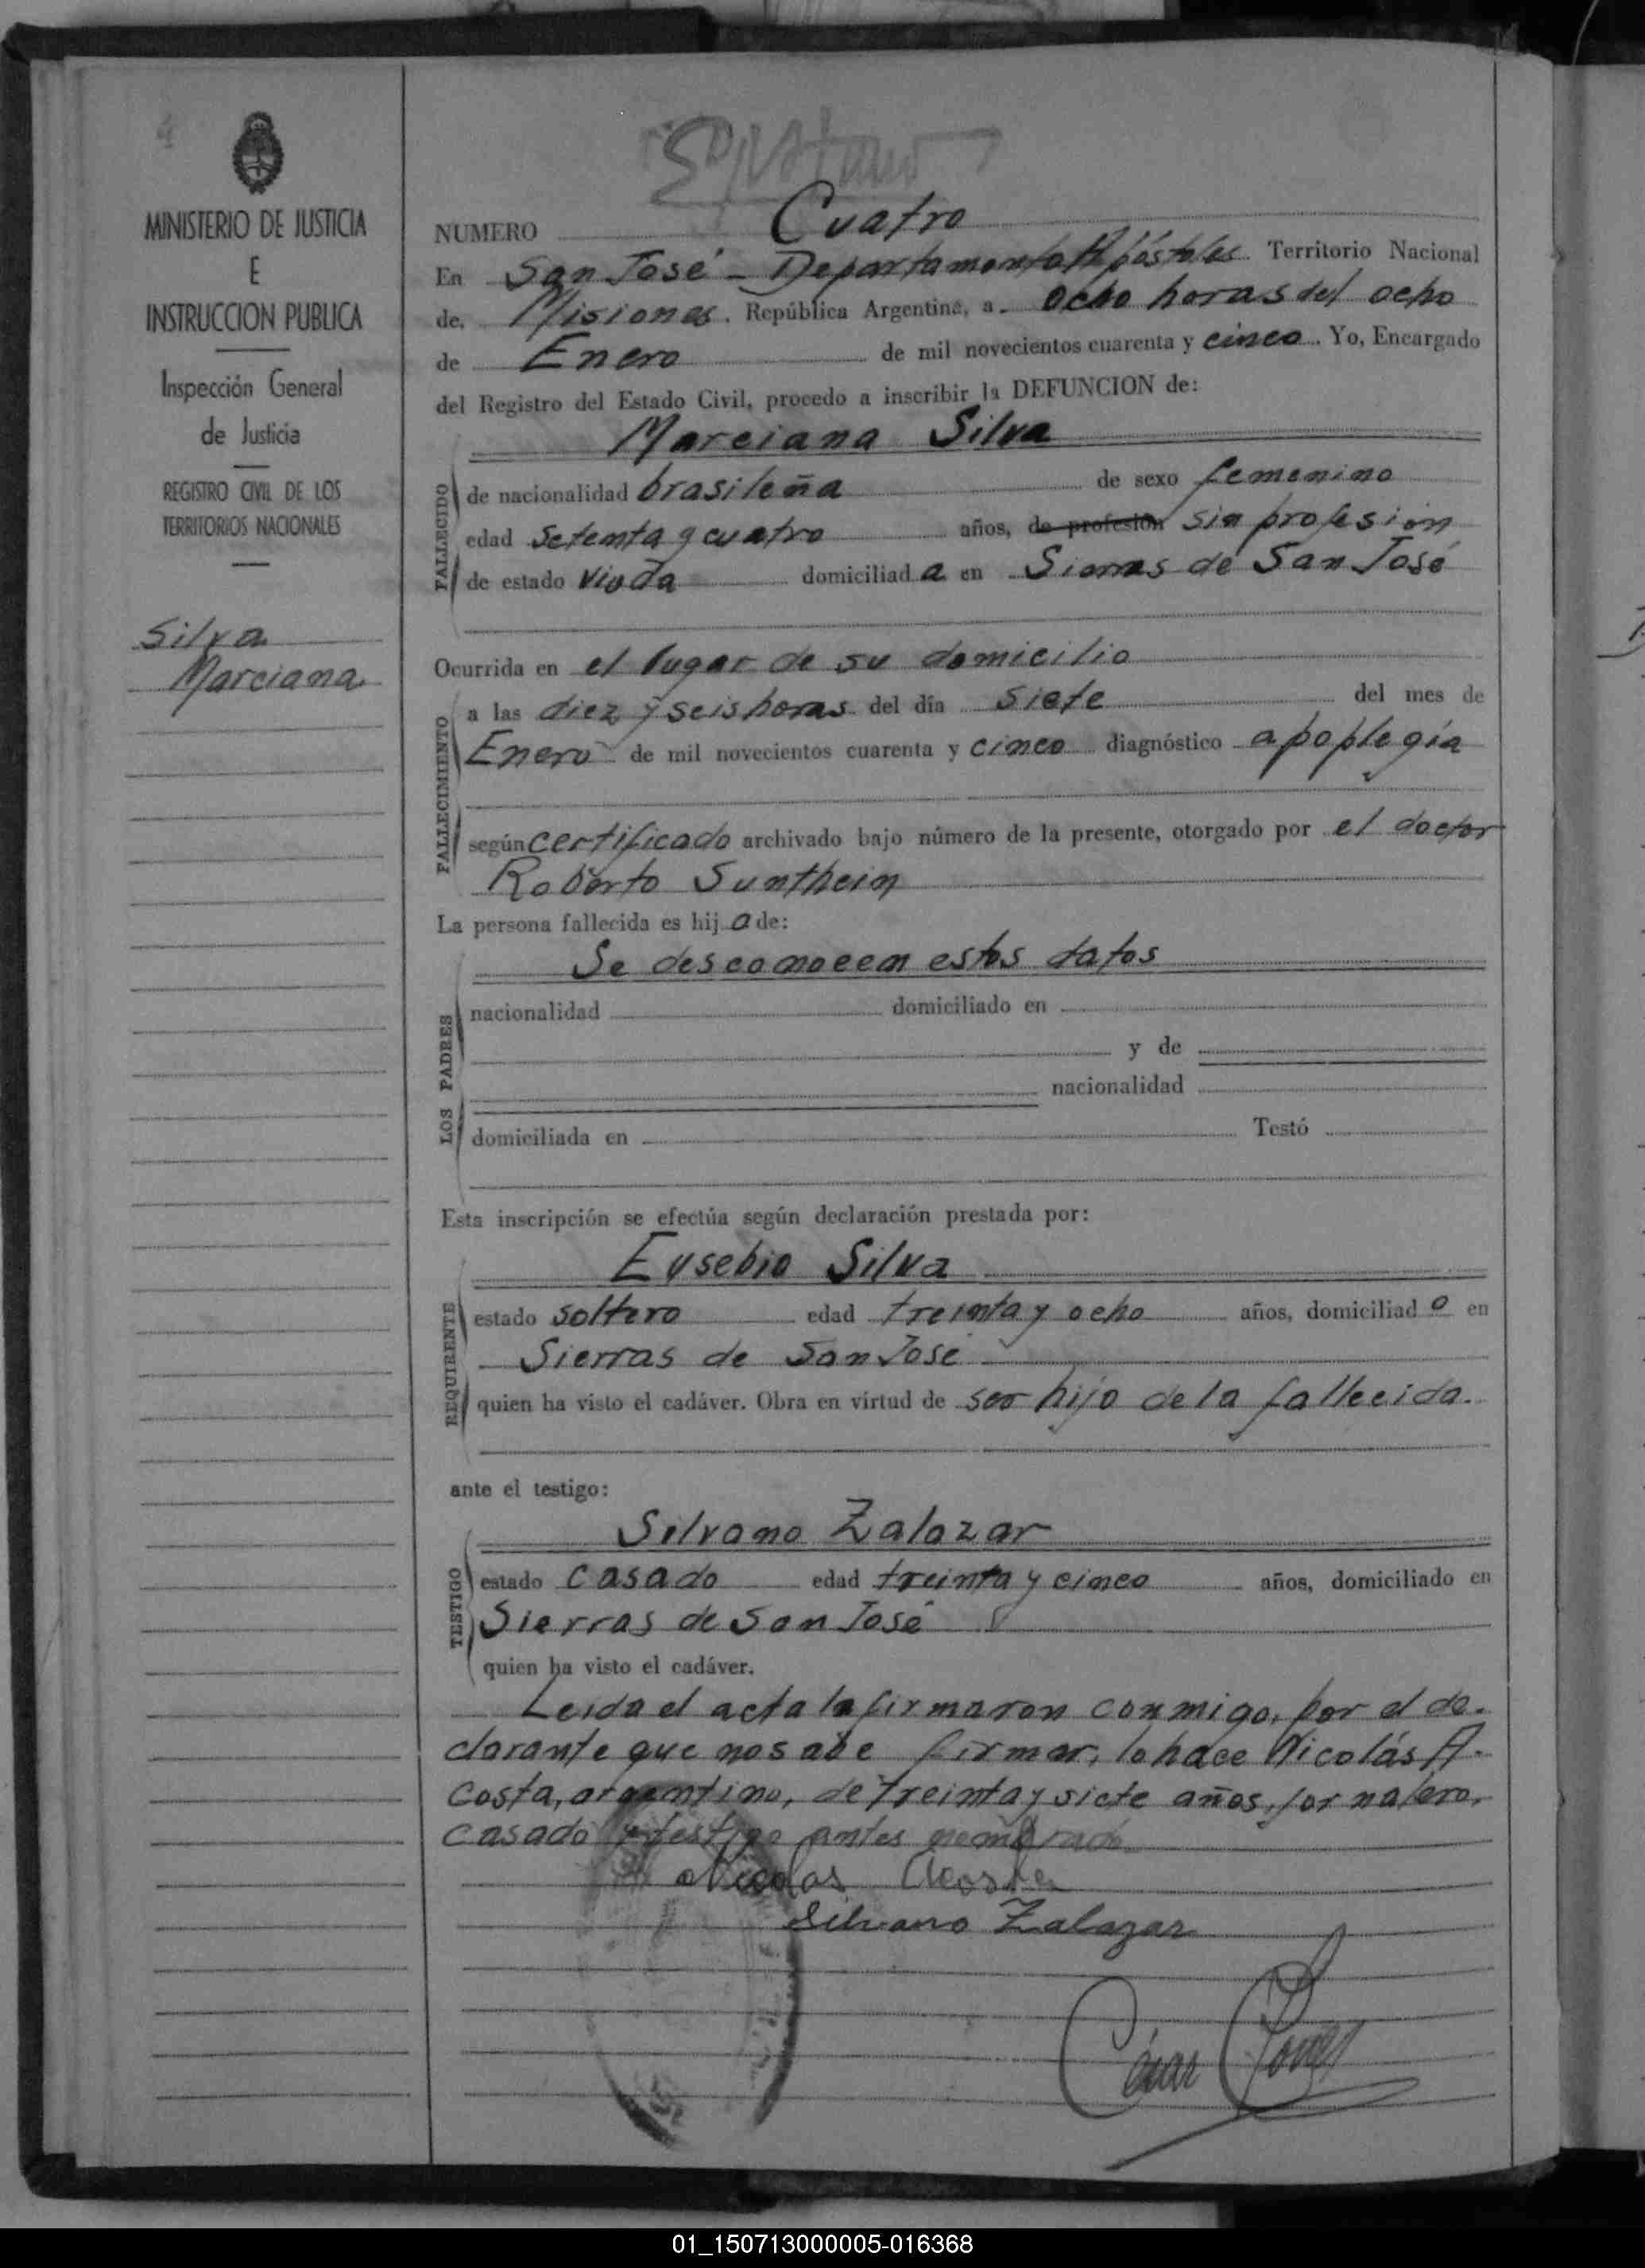 4
MINISTERIO DE JUSTICIA
E
INSTRUCCION PUBLICA
Inspección General
de Justicia
REGISTRO CIVIL DE LOS
TERRITORIOS NACIONALES
Silva
Marciana
NUMERO Cuatro
En San José - Departamento Apóstoles Territorio Nacional
de Misiones. República Argentina, a ocho horas del ocho
de Enero de mil novecientos cuarenta y cinco. Yo, Encargado
del Registro del Estado Civil, procedo a inscribir la DEFUNCION de:
Marciana Silva
FALLECIDO
de nacionalidad brasileña de sexo femenino
edad setenta y cuatro años, de profesión sin profesión
de estado viuda domiciliada en Sierras de San José
Ocurrida en el lugar de su domicilio
FALLECIMIENTO
a las diez y seis horas del día siete del mes de
Enero de mil novecientos cuarenta y cinco diagnóstico apoplegía
según certificado archivado bajo número de la presente, otorgado por el doctor
Roberto Sunthein
La persona fallecida es hija de:
Se desconocen estos datos
LOS PADRES
nacionalidad domiciliado en
y de
nacionalidad
domiciliada en Testó
Esta inscripción se efectúa según declaración prestada por:
Eusebio Silva
REQUIRENTE
estado soltero edad treinta y ocho años, domiciliado en
Sierras de San José
quien ha visto el cadáver. Obra en virtud de ser hijo de la fallecida.
ante el testigo:
Silvano Zalazar
TESTIGO
estado casado edad treinta y cinco años, domiciliado en
Sierras de San José
quien ha visto el cadáver.
Leida el acta la firmaron conmigo, por el de-
clarante que no sabe firmar, lo hace Nicolás A-
costa, argentino, de treinta y siete años, jornalero,
casado y testigo antes nombrado
Nicolas Acosta
Silvano Zalazar
César
01_150713000005-016368